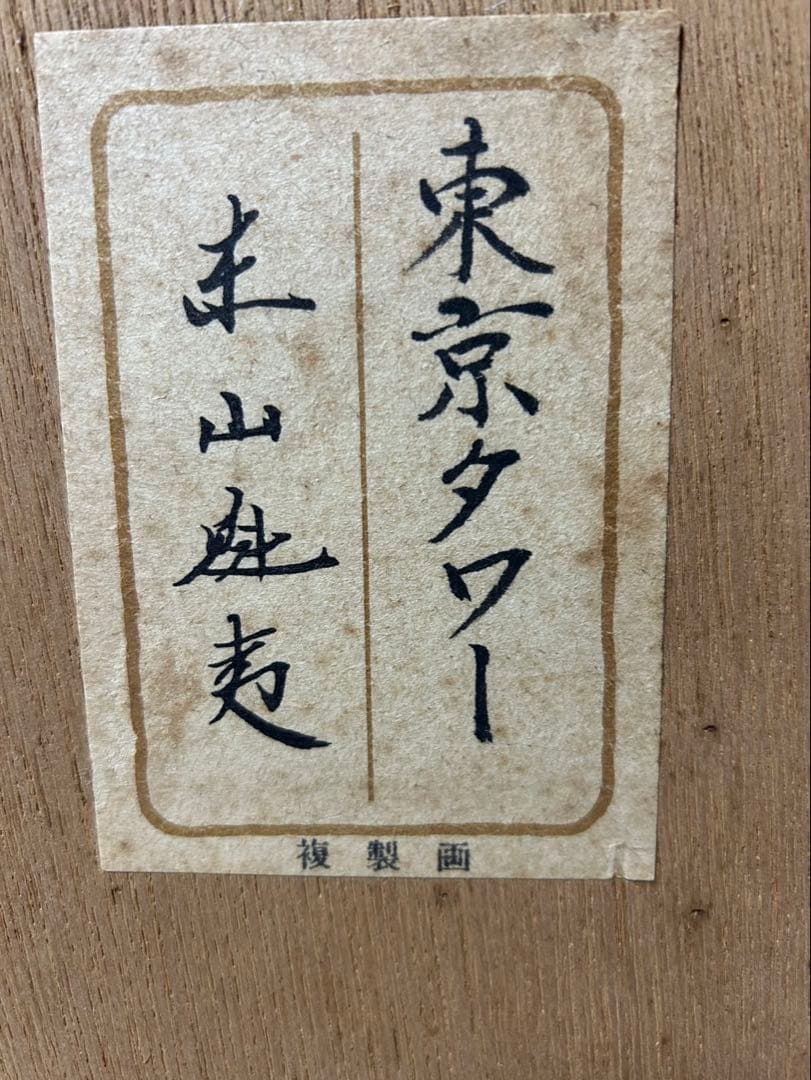 東京タワー
東山魁夷
複製画